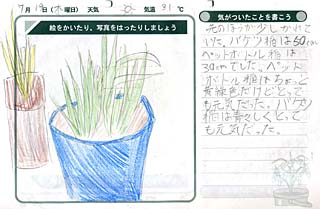 7月19日(木曜日) 天気 気温 31℃
絵をかいたり、写真をはったりしましょう
気がついたことを書こう
先のほうが少しかれて
いた。バケツ稲は50cm
ペットボトル稲は
30cmでした。ペット
ボトル稲はちょっと
黄緑色だけどとって
も元気だった。バケツ
稲は青々しくとって
も元気だった。